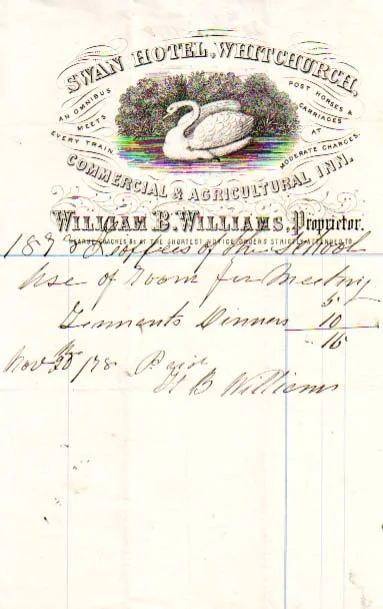 SWAN HOTEL, WHITCHURCH,
AN OMNIBUS MEETS EVERY TRAIN
POST HORSES & CARRIAGES AT MODERATE CHARGES.
COMMERCIAL & AGRICULTURAL INN.
WILLIAM B. WILLIAMS, Proprietor.
COACHES &c AT THE SHORTEST NOTICE ORDERS STRICTLY ATTENDED TO
187 of the School
Use of Room for Meeting 5
Tennants Dinners 10
" 15
Nov 30/78 Paid
W B Williams